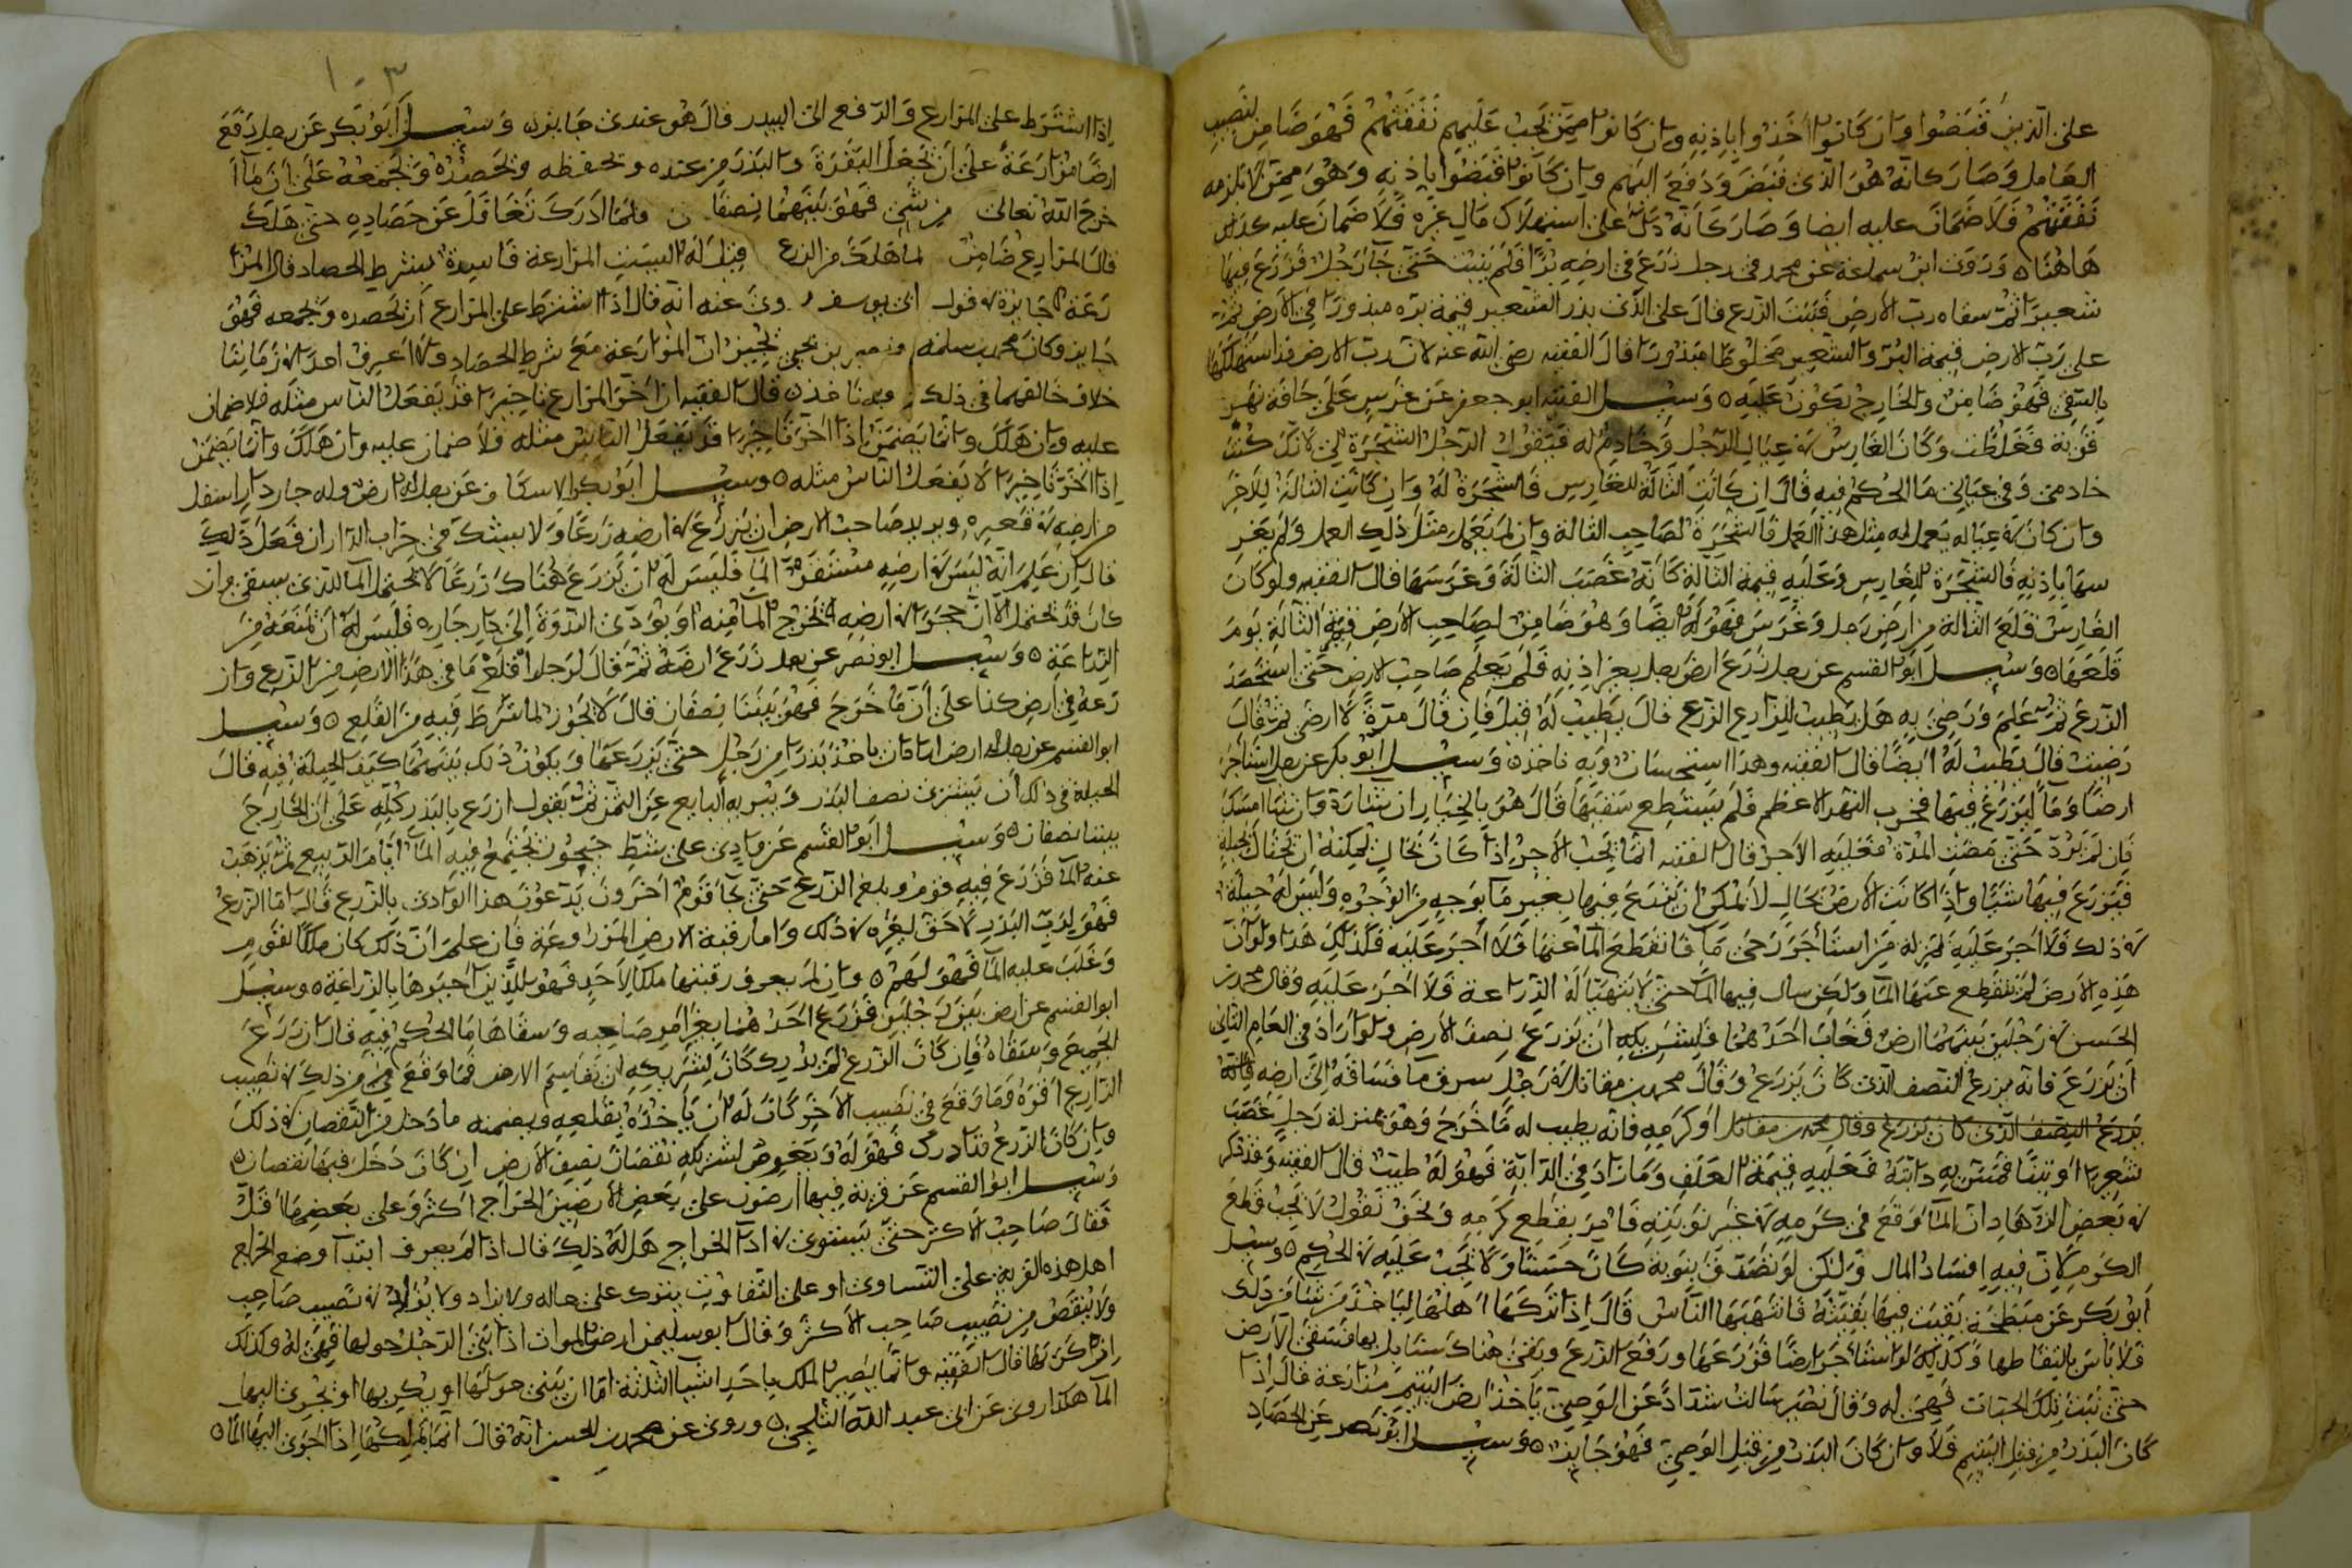 على الذين قبضوا وان كانوا اخذوا باذنه وان كانوا ممن تجب عليهم نفقتهم فهو ضامن لنصيب
العامل وصار كانه هو الذي قبض ودفع اليهم وان كانوا قبضوا باذنه وهو ممن لا تلزمه
نفقتهم فلا ضمان عليه ايضا وصار كانه دل على استهلاك مال غيره فلا ضمان عليه كذلك
هاهنا ه وروى ابن سماعة عن محمد في رجل زرع في ارضه برا فلم ينبت حتى جا رجل فزرع فيها
شعيرا ثم سقاه رب الارض فنبت الزرع قال على الذي بذر الشعير قيمة بره مبذورا في الارض ثم
على رب الارض قيمة البر والشعير مخلوطا مبذورا قال الفقيه رضي الله عنه لان رب الارض قد استهلكها
بالسقي فهو ضامن والخارج يكون عليه ه وسيل الفقيه ابو جعفر عن غرس على حافة نهر
قرية فغلظت وكان الغارس في عيال الرجل وخادم له فيقول الرجل الشجرة لي لانك كنت
خادمي وفي عيالي ما الحكم فيه قال ان كانت التالة للغارس فالشجرة له وان كانت التالة للاخر
وان كان في عياله يعمل له مثل هذا العمل فالشجرة لصاحب التالة وان لم يعمل مثل ذلك العمل ولم يغر
سها باذنه فالشجرة للغارس وعليه قيمة التالة كانه غصب التالة وغرسها قال الفقيه ولو كان
الغارس قلع التالة من ارض رجل وغرس فهو له ايضا وهو ضامن لصاحب الارض قيمة التالة يوم
قلعها ه وسيل ابو القسم عن رجل زرع ارض رجل بغير اذنه فلم يعلم صاحب الارض حتى استحصد
الزرع ثم علم ورضي به هل يطيب للزارع الزرع قال يطيب له قيل فان قال مرة لا ارضى ثم قال
رضيت قال يطيب له ايضا قال الفقيه وهذا استحسان وبه ناخذ ه وسيل ابو بكر عن رجل استاجر
ارضا وما ليزرع فيها فخرب النهر الاعظم فلم يستطع سقيها قال هو بالخيار ان شا رده وان شا امسك
فان لم يرد حتى مضت المدة فعليه الاجر قال الفقيه انما يجب الاجر اذا كان بحال يمكنه ان يحتال بحيلة
فيزرع فيها شيا واذا كانت الارض بحال لا يمكن ان يزرع فيها بغير ما بوجه من الوجوه وليس له حيلة
في ذلك فلا اجر عليه بمنزلة من استاجر رحى ما فانقطع الما عنها فلا اجر عليه فكذلك هذا ولو ان
هذه الارض لم ينقطع عنها الما ولكن سال فيها الما حتى لا يتهيا له الزراعة فلا اجر عليه وقال محمد بن
الحسن في رجلين بينهما ارض فغاب احدهما فلشريكه ان يزرع نصف الارض ولو اراد في العام الثاني
ان يزرع فانه يزرع النصف الذي كان يزرع وقال محمد بن مقاتل في رجل سرق ما فساقه الى ارضه
يزرع النصف الذي كان يزرع وقال محمد بن مقاتل او كرمه فانه يطيب له ما خرج وهو بمنزلة رجل غصب
شعيرا او تبنا فسمن به دابته فعليه قيمة العلف وما زاد في الدابة فهو له طيب قال الفقيه وقد ذكر
في بعض الزهاد ان الما وقع في كرمه في غير نوبته فامر بقطع كرمه ونحن نقول لا يجب قطع
الكرم لان فيه افساد المال ولكن لو تصدق كان حسنا ولا يجب عليه في الحكم ه وسيل
ابو بكر عن مبطخة بقيت فيها بقية فانتهبها الناس قال اذا تركها اهلها لياخذ من شا من ذلك
فلا باس بالتقاطها وكذلك لو استاجر ارضا فزرعها ورفع الزرع وبقي هناك سنابل فسقى الارض
حتى نبتت تلك الحبات فهي له وقال نصير سالت شدادا عن الوصي ياخذ ارض اليتيم مزارعة قال اذا
كان البذر من قبل اليتيم فلا وان كان البذر من قبل الوصي فهو جايز ه وسيل ابو نصر عن الحصاد
١٠٣
اذا اشترط على المزارع والدفع الى البيدر قال هو عندي جايز وسيل ابو بكر عن رجل دفع
ارضا مزارعة على ان يجعل البقرة والبذر من عنده ويحفظه ويحصده ويجمعه على ان ما ا
خرج الله تعالى من شي فهو بينهما نصفان فلما ادرك تغافل عن حصاده حتى هلك
قال المزارع ضامن لما هلك من الزرع قيل له اليست المزارعة فاسدة بشرط الحصاد قال المزا
رعة جايزة في قول ابي يوسف روي عنه انه قال اذا اشترط على المزارع ان يحصده ويجمعه فهو
جايز وكان محمد بن سلمة ونصير بن يحيى يجيزان المزارعة مع شرط الحصاد ولا اعرف احدا في زماننا
خلاف خالفهما في ذلك وبه ناخذ ه قال الفقيه ان اخر المزارع تاخيرا قد يفعل الناس مثله فلا ضمان
عليه وان هلك وانما يضمن اذا اخر تاخيرا قد يفعل الناس مثله فلا ضمان عليه وان هلك وانما يضمن
اذا اخر تاخيرا لا يفعل الناس مثله ه وسيل ابو بكر الاسكاف عن رجل له ارض وله جار دار اسفل
من ارضه في قعيره ويريد صاحب الارض ان يزرع في ارضه زرعا ولا يشك في خراب الدار ان فعل ذلك
قال ان علم انه ليس في ارضه مستقر الما فليس له ان يزرع هناك زرعا لا يحتمل الما الذي يسقي وان
كان قد يحتمل الا ان جحرا في ارضه يخرج الما منه او يودي الندوة الى دار جاره فليس له ان يمنعه من
الزراعة ه وسيل ابو نصر عن رجل زرع ارضه ثم قال لرجل اقلع ما في هذا الارض من الزرع واز
رعه في ارض كذا على ان ما خرج فهو بيننا نصفان قال لا يجوز لما شرط فيه من القلع ه وسيل
ابو القسم عن رجل له ارض اراد ان ياخذ بذرا من رجل حتى يزرعها ويكون ذلك بينهما كيف الحيلة فيه قال
الحيلة في ذلك ان يشتري نصف البذر ويبريه البايع عن الثمن ثم يقول ازرع بالبذر كله على ان الخارج
بيننا نصفان ه وسيل ابو القسم عن وادي على شط جيحون يجتمع فيه الما ايام الربيع ثم يذهب
عنه الما فزرع فيه قوم وبلغ الزرع حتى جا قوم اخرون يدعون هذا الوادي بالزرع قال اما الزرع
فهو لرب البذر لا حق لغيره في ذلك واما رقبة الارض المزروعة فان علم ان ذلك كان ملكا لقوم
وغلب عليه الما فهو لهم ه وان لم يعرف رقبتها ملكا لاحد فهو للذين احيوها بالزراعة ه وسيل
ابو القسم عن ارض بين رجلين فزرع احدهما بغير امر صاحبه وسقاها ما الحكم فيه قال ان زرع
الجميع وسقاه فان كان الزرع لم يدرك كان لشريكه ان يقاسم الارض فما وقع من ذلك في نصيب
الزارع اقره وما وقع في نصيب الاخر كان له ان ياخذه بقلعه ويضمنه ما دخل من النقصان في ذلك
وان كان الزرع قد ادرك فهو له ويغرم لشريكه نقصان نصف الارض ان كان دخل فيها نقصان ه
وسيل ابو القسم عن قرية فيها ارضون على بعض الارضين الخراج اكثر وعلى بعضها اقل
فقال صاحب الاكثر حتى يستوي في ادا الخراج هل له ذلك قال اذا لم يعرف ابتدا وضع الخراج
اهل هذه القرية على التساوي او على التفاوت يترك على حاله ولا يزاد ولا في نصيب صاحب
ولا ينقص من نصيب صاحب الاكثر وقال ابو سليمن ارض الموات اذا بنى الرجل حولها فهي له وكذلك
ان كربها قال الفقيه وانما يصير الملك باحد اشيا الثلثة اما ان يبني حولها او يكربها او يجري اليها
الما هكذا روي عن ابي عبد الله الثلجي ه وروي عن محمد بن الحسن انه قال انما يملكها اذا اجرى اليها الما ه